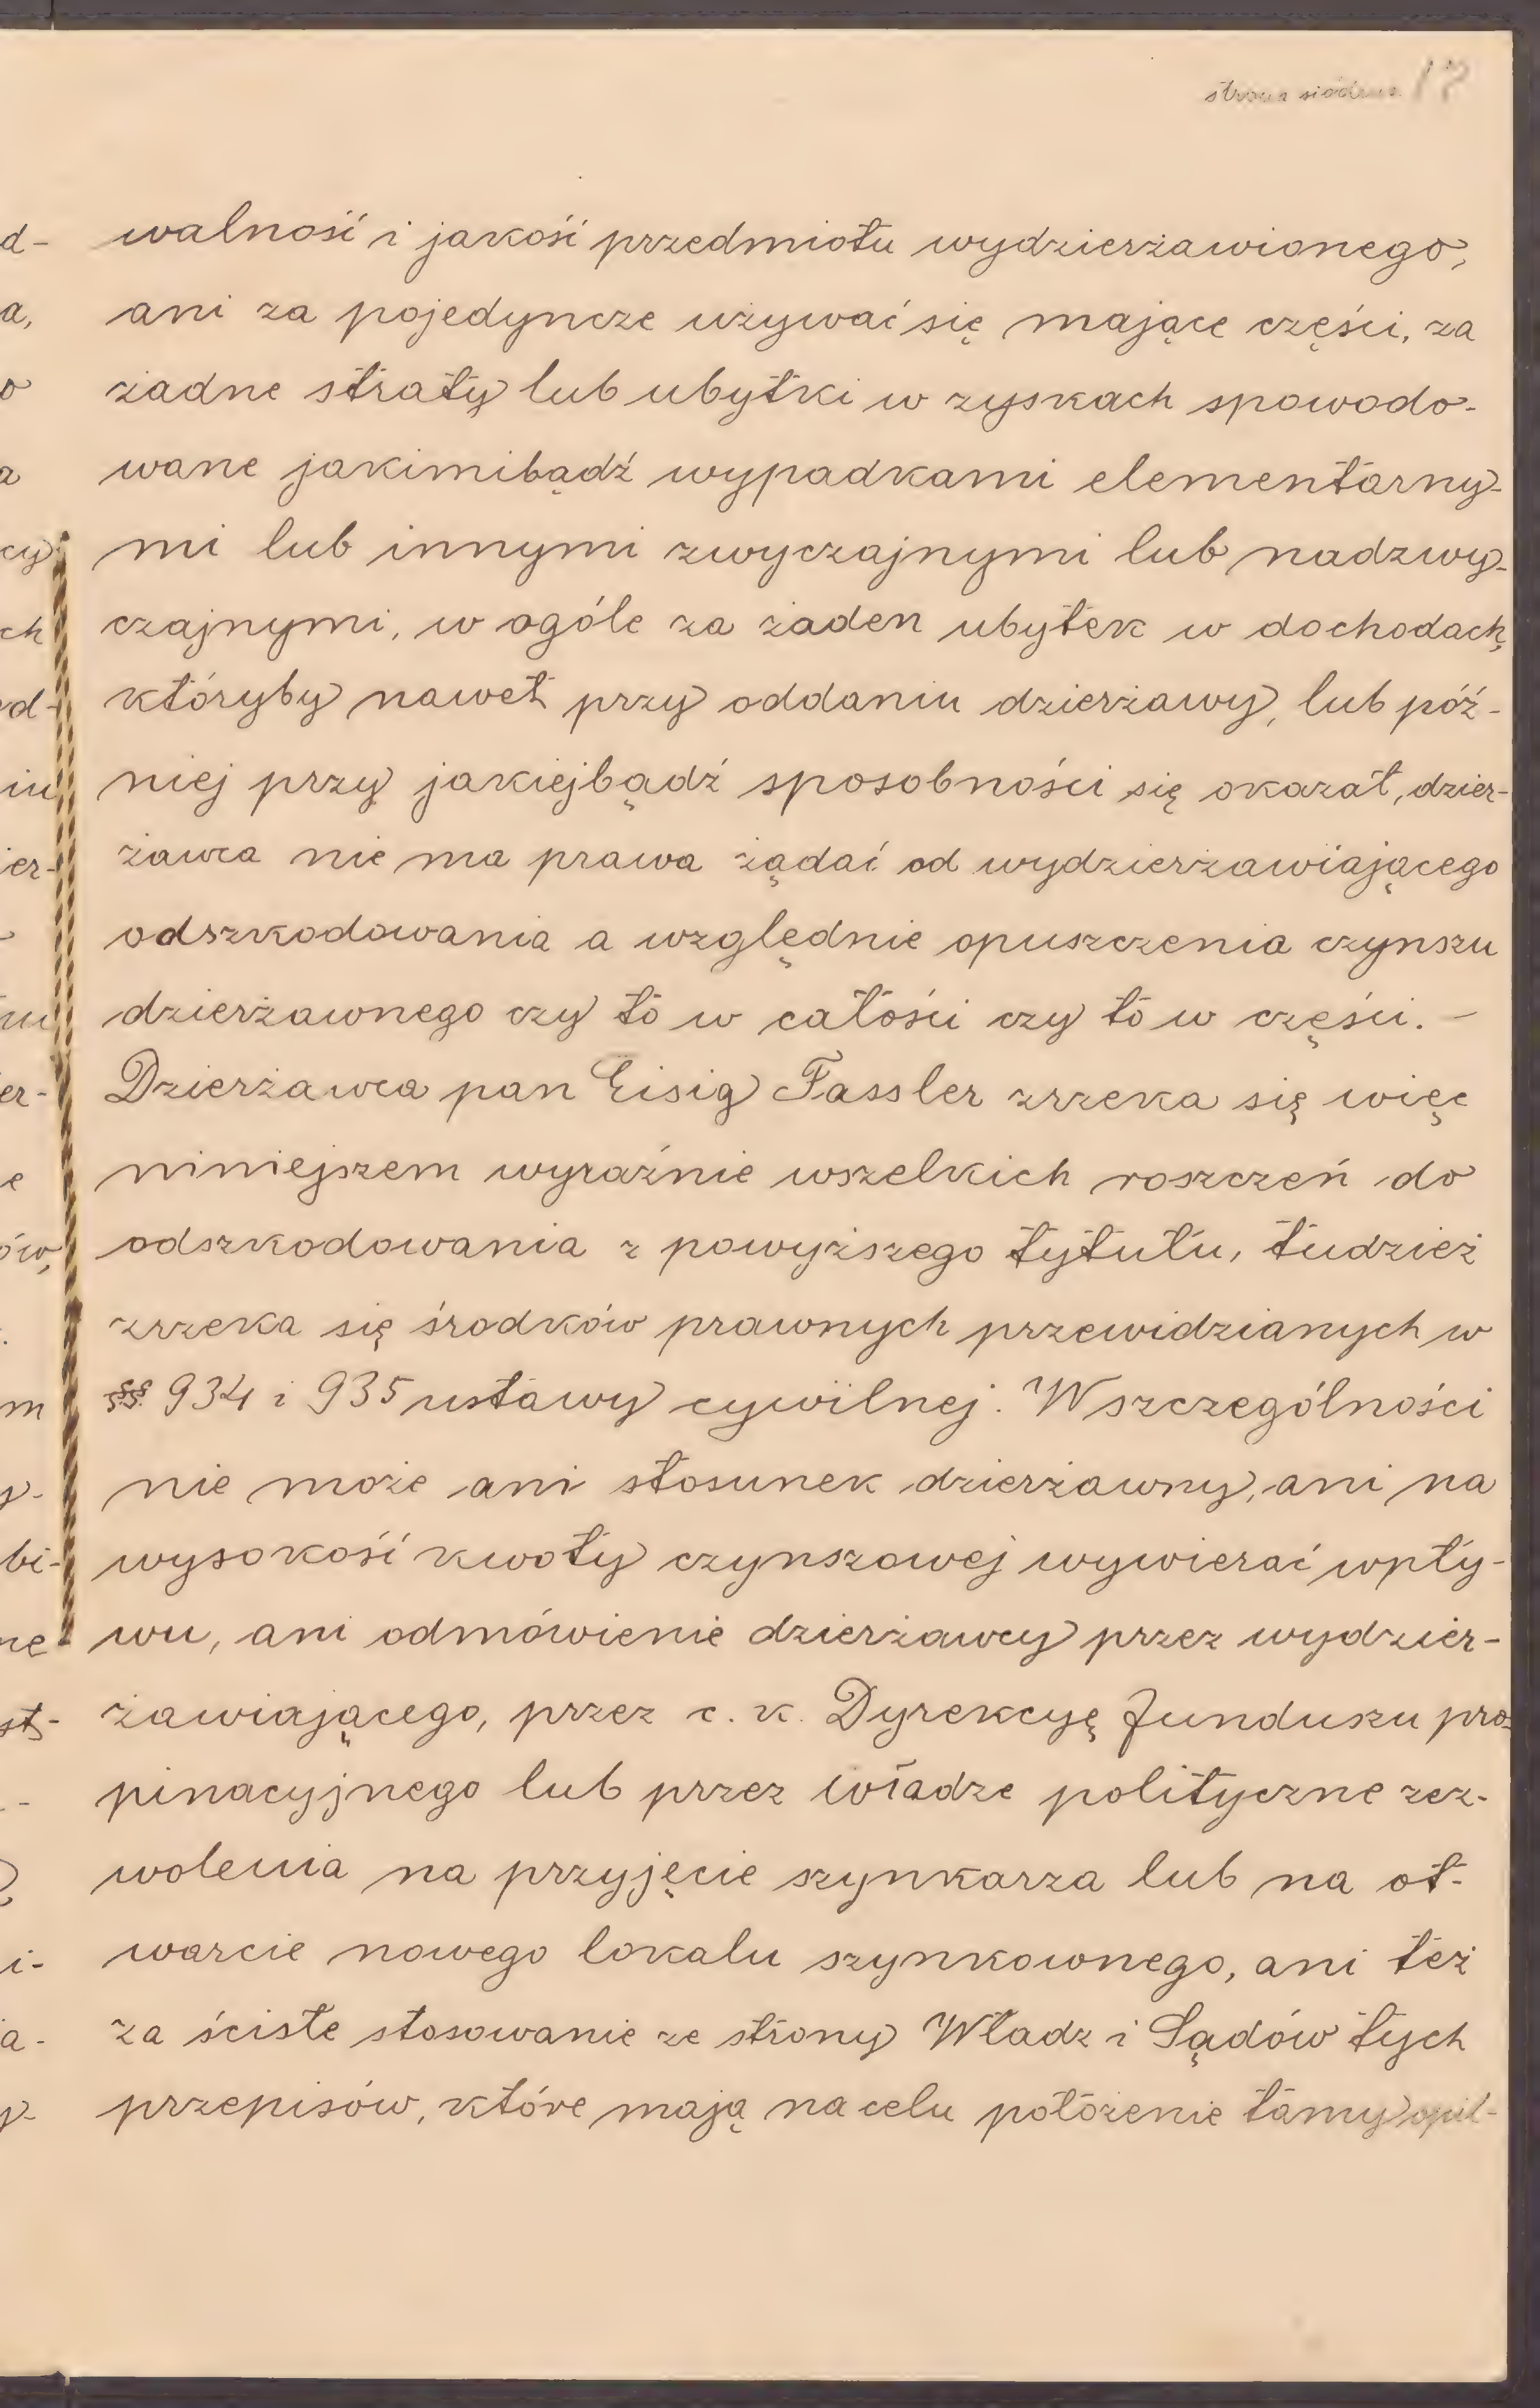 strona siódma 17
walność i jakość przedmiotu wydzierżawionego,
ani za pojedyncze używać się mające części, za
żadne straty lub ubytki w zyskach spowodo-
wane jakimibądź wypadkami elementarny-
mi lub innymi zwyczajnymi lub nadzwy-
czajnymi, w ogóle za żaden ubytek w dochodach,
któryby nawet przy oddaniu dzierżawy, lub póź-
niej przy jakiejbądź sposobności się okazał, dzier-
żawca nie ma prawa żądać od wydzierżawiającego
odszkodowania a względnie opuszczenia czynszu
dzierżawnego czy to w całości czy to w części. —
Dzierżawca pan Eisig Fassler zrzeka się więc
niniejszem wyraźnie wszelkich roszczeń do
odszkodowania z powyższego tytułu, tudzież
zrzeka się środków prawnych przewidzianych w
§§ 934 i 935 ustawy cywilnej. W szczególności
nie może ani stosunek dzierżawny, ani na
wysokość kwoty czynszowej wywierać wpły-
wu, ani odmówienie dzierżawcy przez wydzier-
żawiającego, przez c. k. Dyrekcyę funduszu pro-
pinacyjnego lub przez władze polityczne zez-
wolenia na przyjęcie szynkarza lub na ot-
warcie nowego lokalu szynkownego, ani też
za ścisłe stosowanie ze strony Władz i Sądów tych
przepisów, które mają na celu położenie tamy opil-